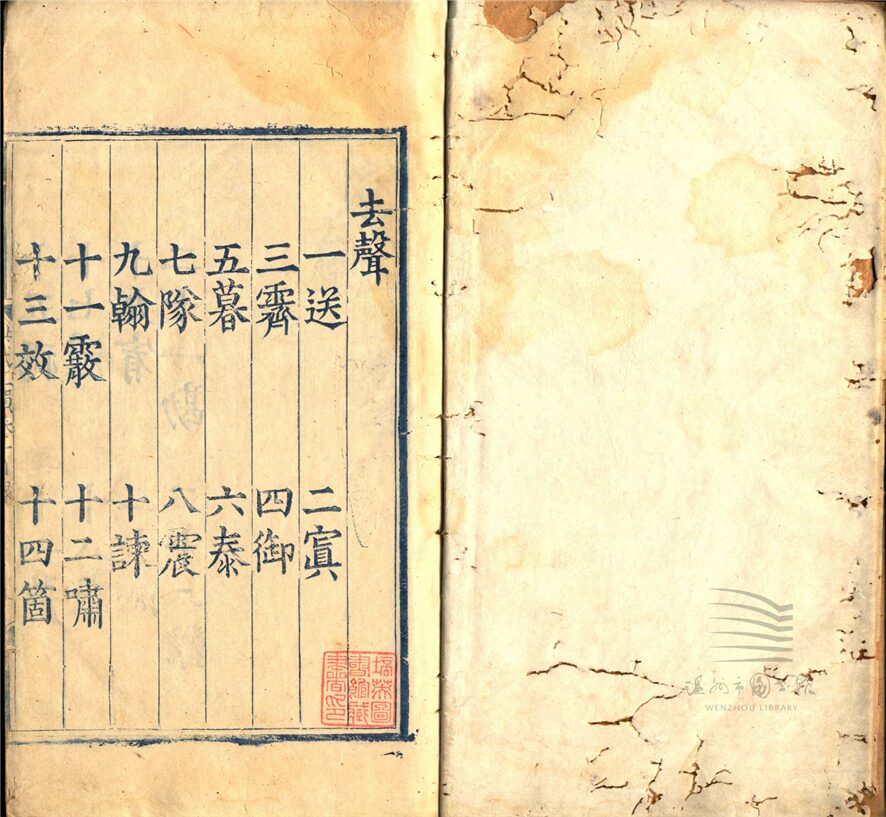 去聲
一送 二寘
三霽 四御
五暮 六泰
七隊 八震
九翰 十諫
十一霰 十二嘯
十三效 十四箇
温州市图书馆
WENZHOU LIBRARY